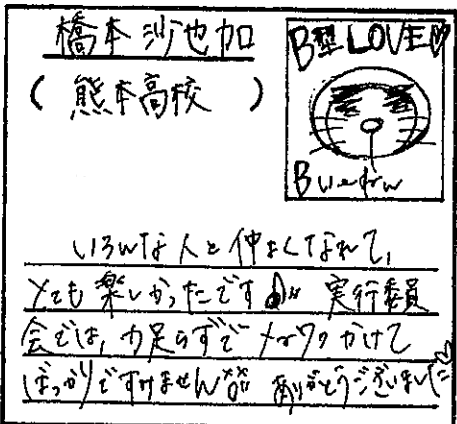 橋本沙也加
(熊本高校)
B型 LOVE♡
いろんな人と仲よくなれて、
とても楽しかったです♪ 実行委員
会では、力足らずで メーワクかけて
ばっかりですみません ありがとうございました